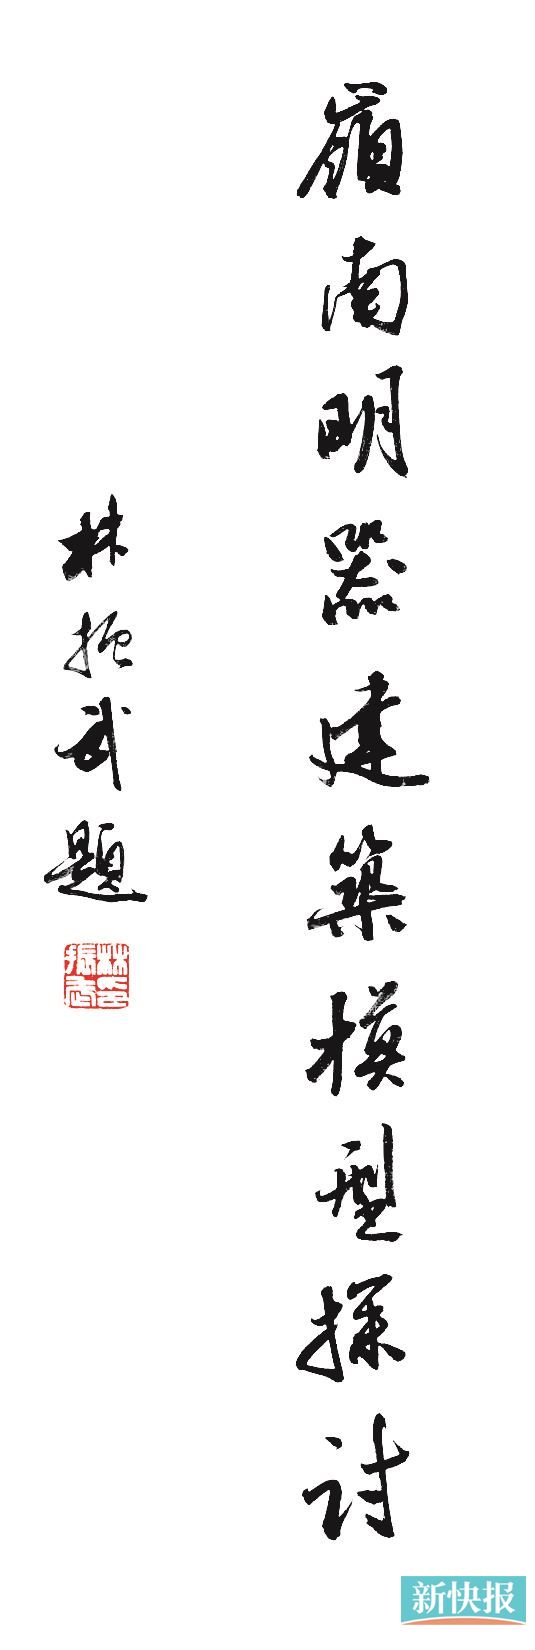 嶺南明器建築模型探討
林振武題
林振武印
新快报